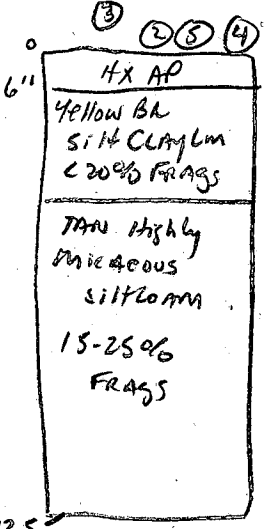 ③
② ⑤ ④
0
6"
HX AP
Yellow BR
silt CLAYLM
< 20% FRAGS
TAN Highly
MICACEOUS
siltLOAM
15-25%
FRAGS